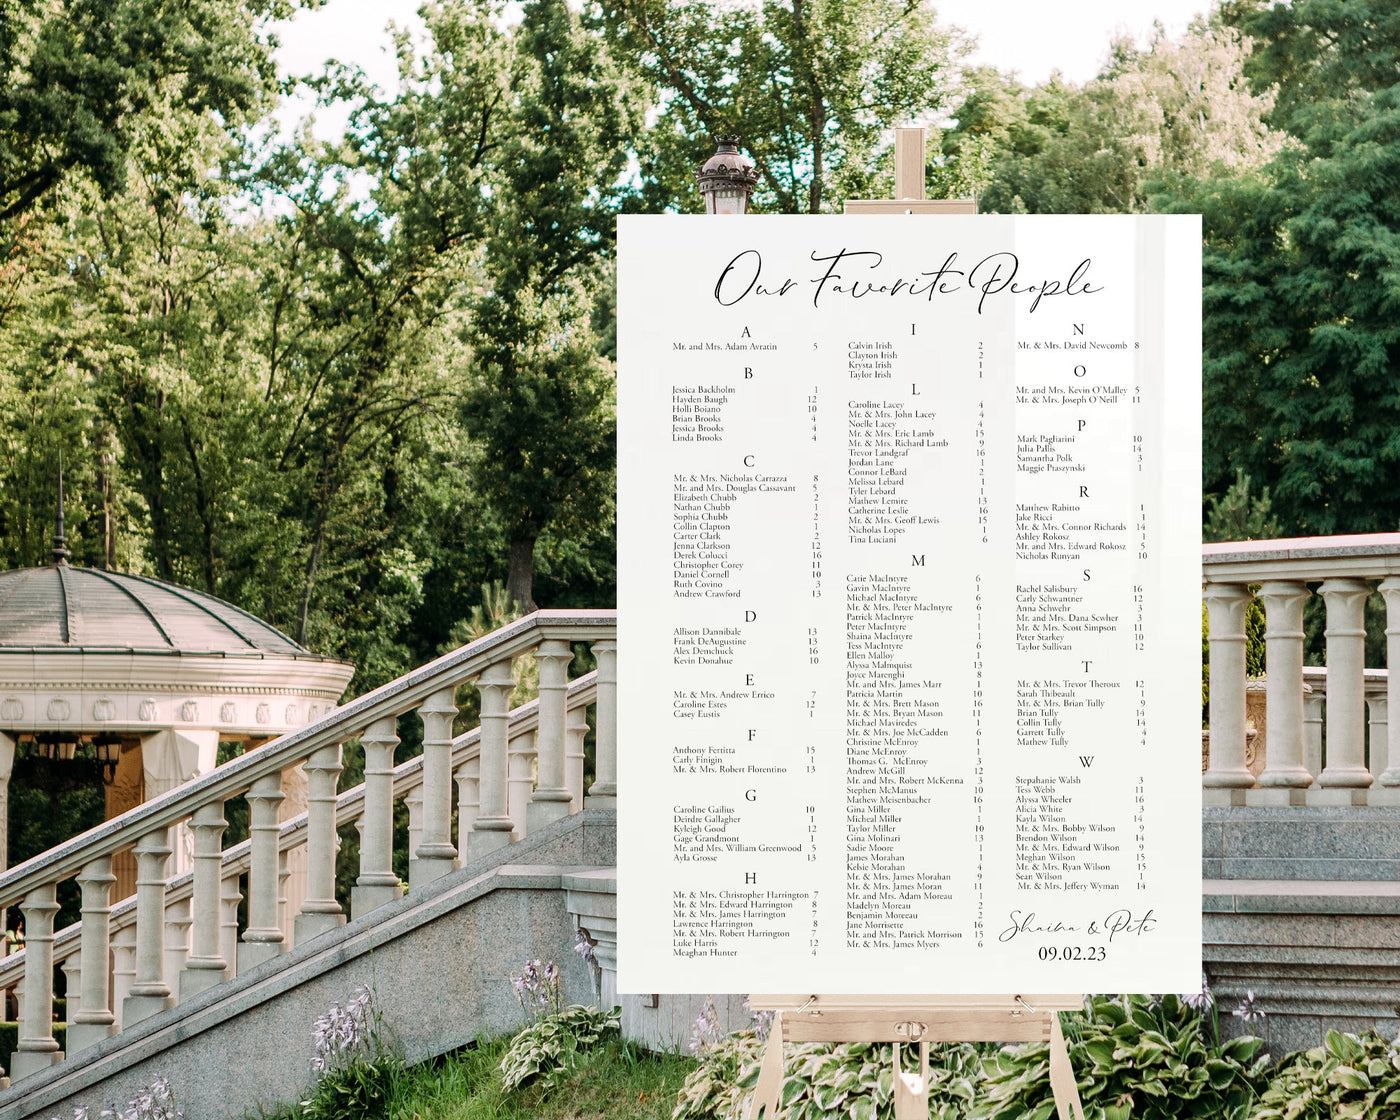 Our Favorite People
A
Mr. and Mrs. Adam Avratin 5
B
Jessica Backholm 1
Hayden Baugh 12
Holli Boiano 10
Brian Brooks 4
Jessica Brooks 4
Linda Brooks 4
C
Mr. & Mrs. Nicholas Carrazza 8
Mr. and Mrs. Douglas Cassavant 5
Elizabeth Chubb 2
Nathan Chubb 1
Sophia Chubb 2
Collin Clapton 1
Carter Clark 2
Jenna Clarkson 12
Derek Colucci 16
Christopher Corey 11
Daniel Cornell 10
Ruth Covino 3
Andrew Crawford 13
D
Allison Dannibale 13
Frank DeAugustine 13
Alex Demchuck 16
Kevin Donahue 10
E
Mr. & Mrs. Andrew Errico 7
Caroline Estes 12
Casey Eustis 1
F
Anthony Fertitta 15
Carly Finigin 1
Mr. & Mrs. Robert Florentino 13
G
Caroline Gailius 10
Deirdre Gallagher 1
Kyleigh Good 12
Gage Grandmont 1
Mr. and Mrs. William Greenwood 5
Ayla Grosse 13
H
Mr. & Mrs. Christopher Harrington 7
Mr. & Mrs. Edward Harrington 8
Mr. & Mrs. James Harrington 7
Lawrence Harrington 8
Mr. & Mrs. Robert Harrington 7
Luke Harris 12
Meaghan Hunter 4
I
Calvin Irish 2
Clayton Irish 2
Krysta Irish 1
Taylor Irish 1
L
Caroline Lacey 4
Mr. & Mrs. John Lacey 4
Noelle Lacey 4
Mr. & Mrs. Eric Lamb 15
Mr. & Mrs. Richard Lamb 9
Trevor Landgraf 16
Jordan Lane 1
Connor LeBard 2
Melissa Lebard 1
Tyler Lebard 1
Mathew Lemire 13
Catherine Leslie 16
Mr. & Mrs. Geoff Lewis 15
Nicholas Lopes 1
Tina Luciani 6
M
Catie MacIntyre 6
Gavin MacIntyre 1
Michael MacIntyre 6
Mr. & Mrs. Peter MacIntyre 6
Patrick MacIntyre 1
Peter MacIntyre 1
Shaina MacIntyre 1
Tess MacIntyre 6
Ellen Malloy 1
Alyssa Malmquist 13
Joyce Marenghi 8
Mr. and Mrs. James Marr 1
Patricia Martin 10
Mr. & Mrs. Brett Mason 16
Mr. & Mrs. Bryan Mason 11
Michael Maviredes 1
Mr. & Mrs. Joe McCadden 6
Christine McEnroy 1
Diane McEnroy 1
Thomas G. McEnroy 3
Andrew McGill 12
Mr. and Mrs. Robert McKenna 3
Stephen McManus 10
Mathew Meisenbacher 16
Gina Miller 1
Micheal Miller 1
Taylor Miller 10
Gina Molinari 13
Sadie Moore 1
James Morahan 1
Kelsie Morahan 4
Mr. & Mrs. James Morahan 9
Mr. & Mrs. James Moran 11
Mr. and Mrs. Adam Moreau 1
Madelyn Moreau 2
Benjamin Moreeau 2
Jane Morrisette 16
Mr. and Mrs. Patrick Morrison 15
Mr. & Mrs. James Myers 6
N
Mr. & Mrs. David Newcomb 8
O
Mr. and Mrs. Kevin O'Malley 5
Mr. & Mrs. Joseph O'Neill 11
P
Mark Pagliarini 10
Julia Pallis 14
Samantha Polk 3
Maggie Ptaszynski 1
R
Matthew Rabitto 1
Jake Ricci 1
Mr. & Mrs. Connor Richards 14
Ashley Rokosz 1
Mr. and Mrs. Edward Rokosz 5
Nicholas Runyan 10
S
Rachel Salisbury 16
Carly Schwantner 12
Anna Schwehr 3
Mr. and Mrs. Dana Scwher 3
Mr. & Mrs. Scott Simpson 11
Peter Starkey 10
Taylor Sullivan 12
T
Mr. & Mrs. Trevor Theroux 12
Sarah Thibeault 1
Mr. & Mrs. Brian Tully 9
Brian Tully 14
Collin Tully 14
Garrett Tully 4
Mathew Tully 4
W
Stepahanie Walsh 3
Tess Webb 11
Alyssa Wheeler 16
Alicia White 3
Kayla Wilson 14
Mr. & Mrs. Bobby Wilson 9
Brendon Wilson 14
Mr. & Mrs. Edward Wilson 9
Meghan Wilson 15
Mr. & Mrs. Ryan Wilson 15
Sean Wilson 1
Mr. & Mrs. Jeffery Wyman 14
Shaina & Pete
09.02.23